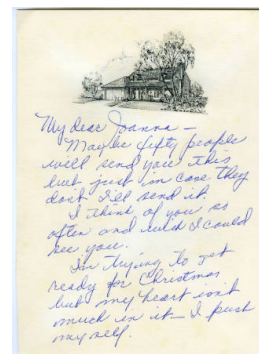 My dear Joanna –
Maybe fifty people
will send you this
but just in case they
don't I'll send it
I think of you so
often and wish I could
see you.
I'm trying to get
ready for Christmas
but my heart isn't
much in it – I push
myself.